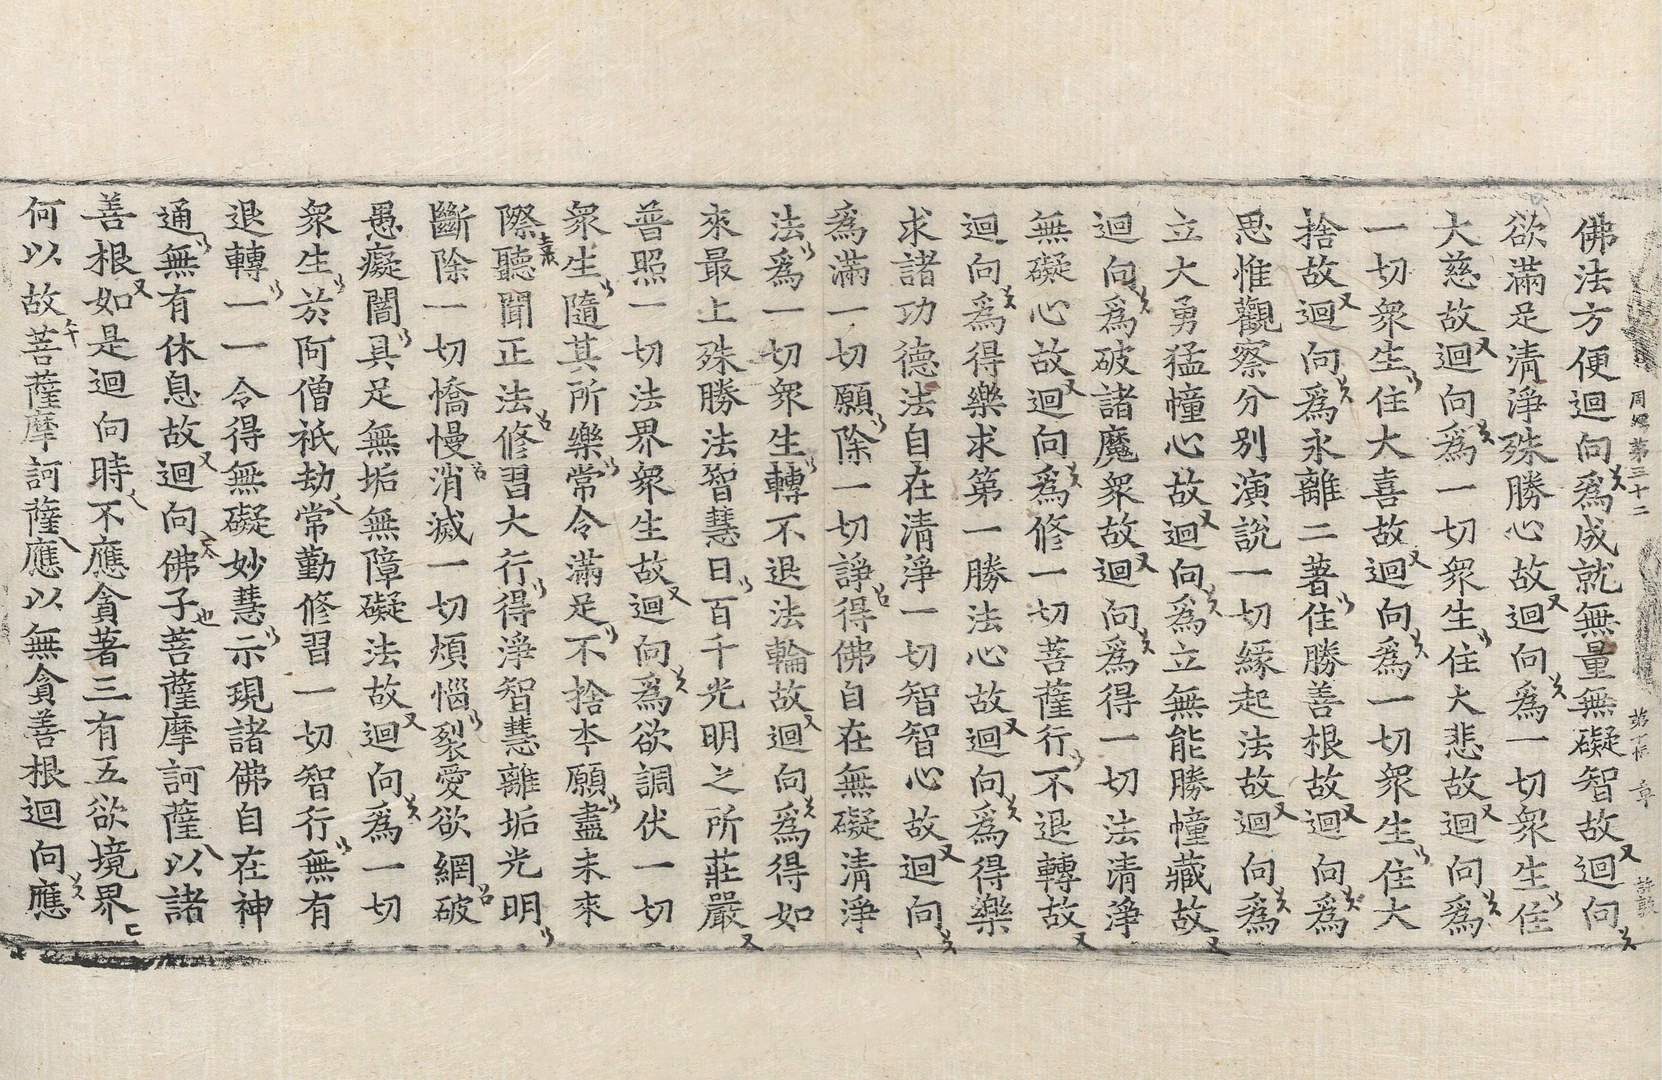 第三十二
佛法方便迴向爲成就無量無礙智故迴向
欲滿足清淨殊勝心故迴向爲一切衆生住
大慈故迴向爲一切衆生住大悲故迴向爲
一切衆生住大喜故迴向爲一切衆生住大
捨故迴向爲永離二著住勝善根故迴向爲
思惟觀察分別演說一切緣起法故迴向爲
立大勇猛幢心故迴向爲立無能勝幢藏故
迴向爲破諸魔衆故迴向爲得一切法清淨
無礙心故迴向爲修一切菩薩行不退轉故
迴向爲得樂求第一勝法心故迴向爲得樂
求諸功德法自在清淨一切智智心故迴向
爲滿一切願除一切諍得佛自在無礙清淨
法爲一切衆生轉不退法輪故迴向爲得如
來最上殊勝法智慧日百千光明之所莊嚴
普照一切法界衆生故迴向爲欲調伏一切
衆生隨其所樂常令滿足不捨夲願盡未來
際聽聞正法修習大行得淨智慧離垢光明
斷除一切憍慢消滅一切煩惱裂愛欲網破
愚癡闇具足無垢無障礙法故迴向爲一切
衆生於阿僧祇劫常勤修習一切智行無有
退轉一一令得無礙妙慧示現諸佛自在神
通無有休息故迴向佛子菩薩摩訶薩以諸
善根如是迴向時不應貪著三有五欲境界
何以故菩薩摩訶薩應以無貪善根迴向應